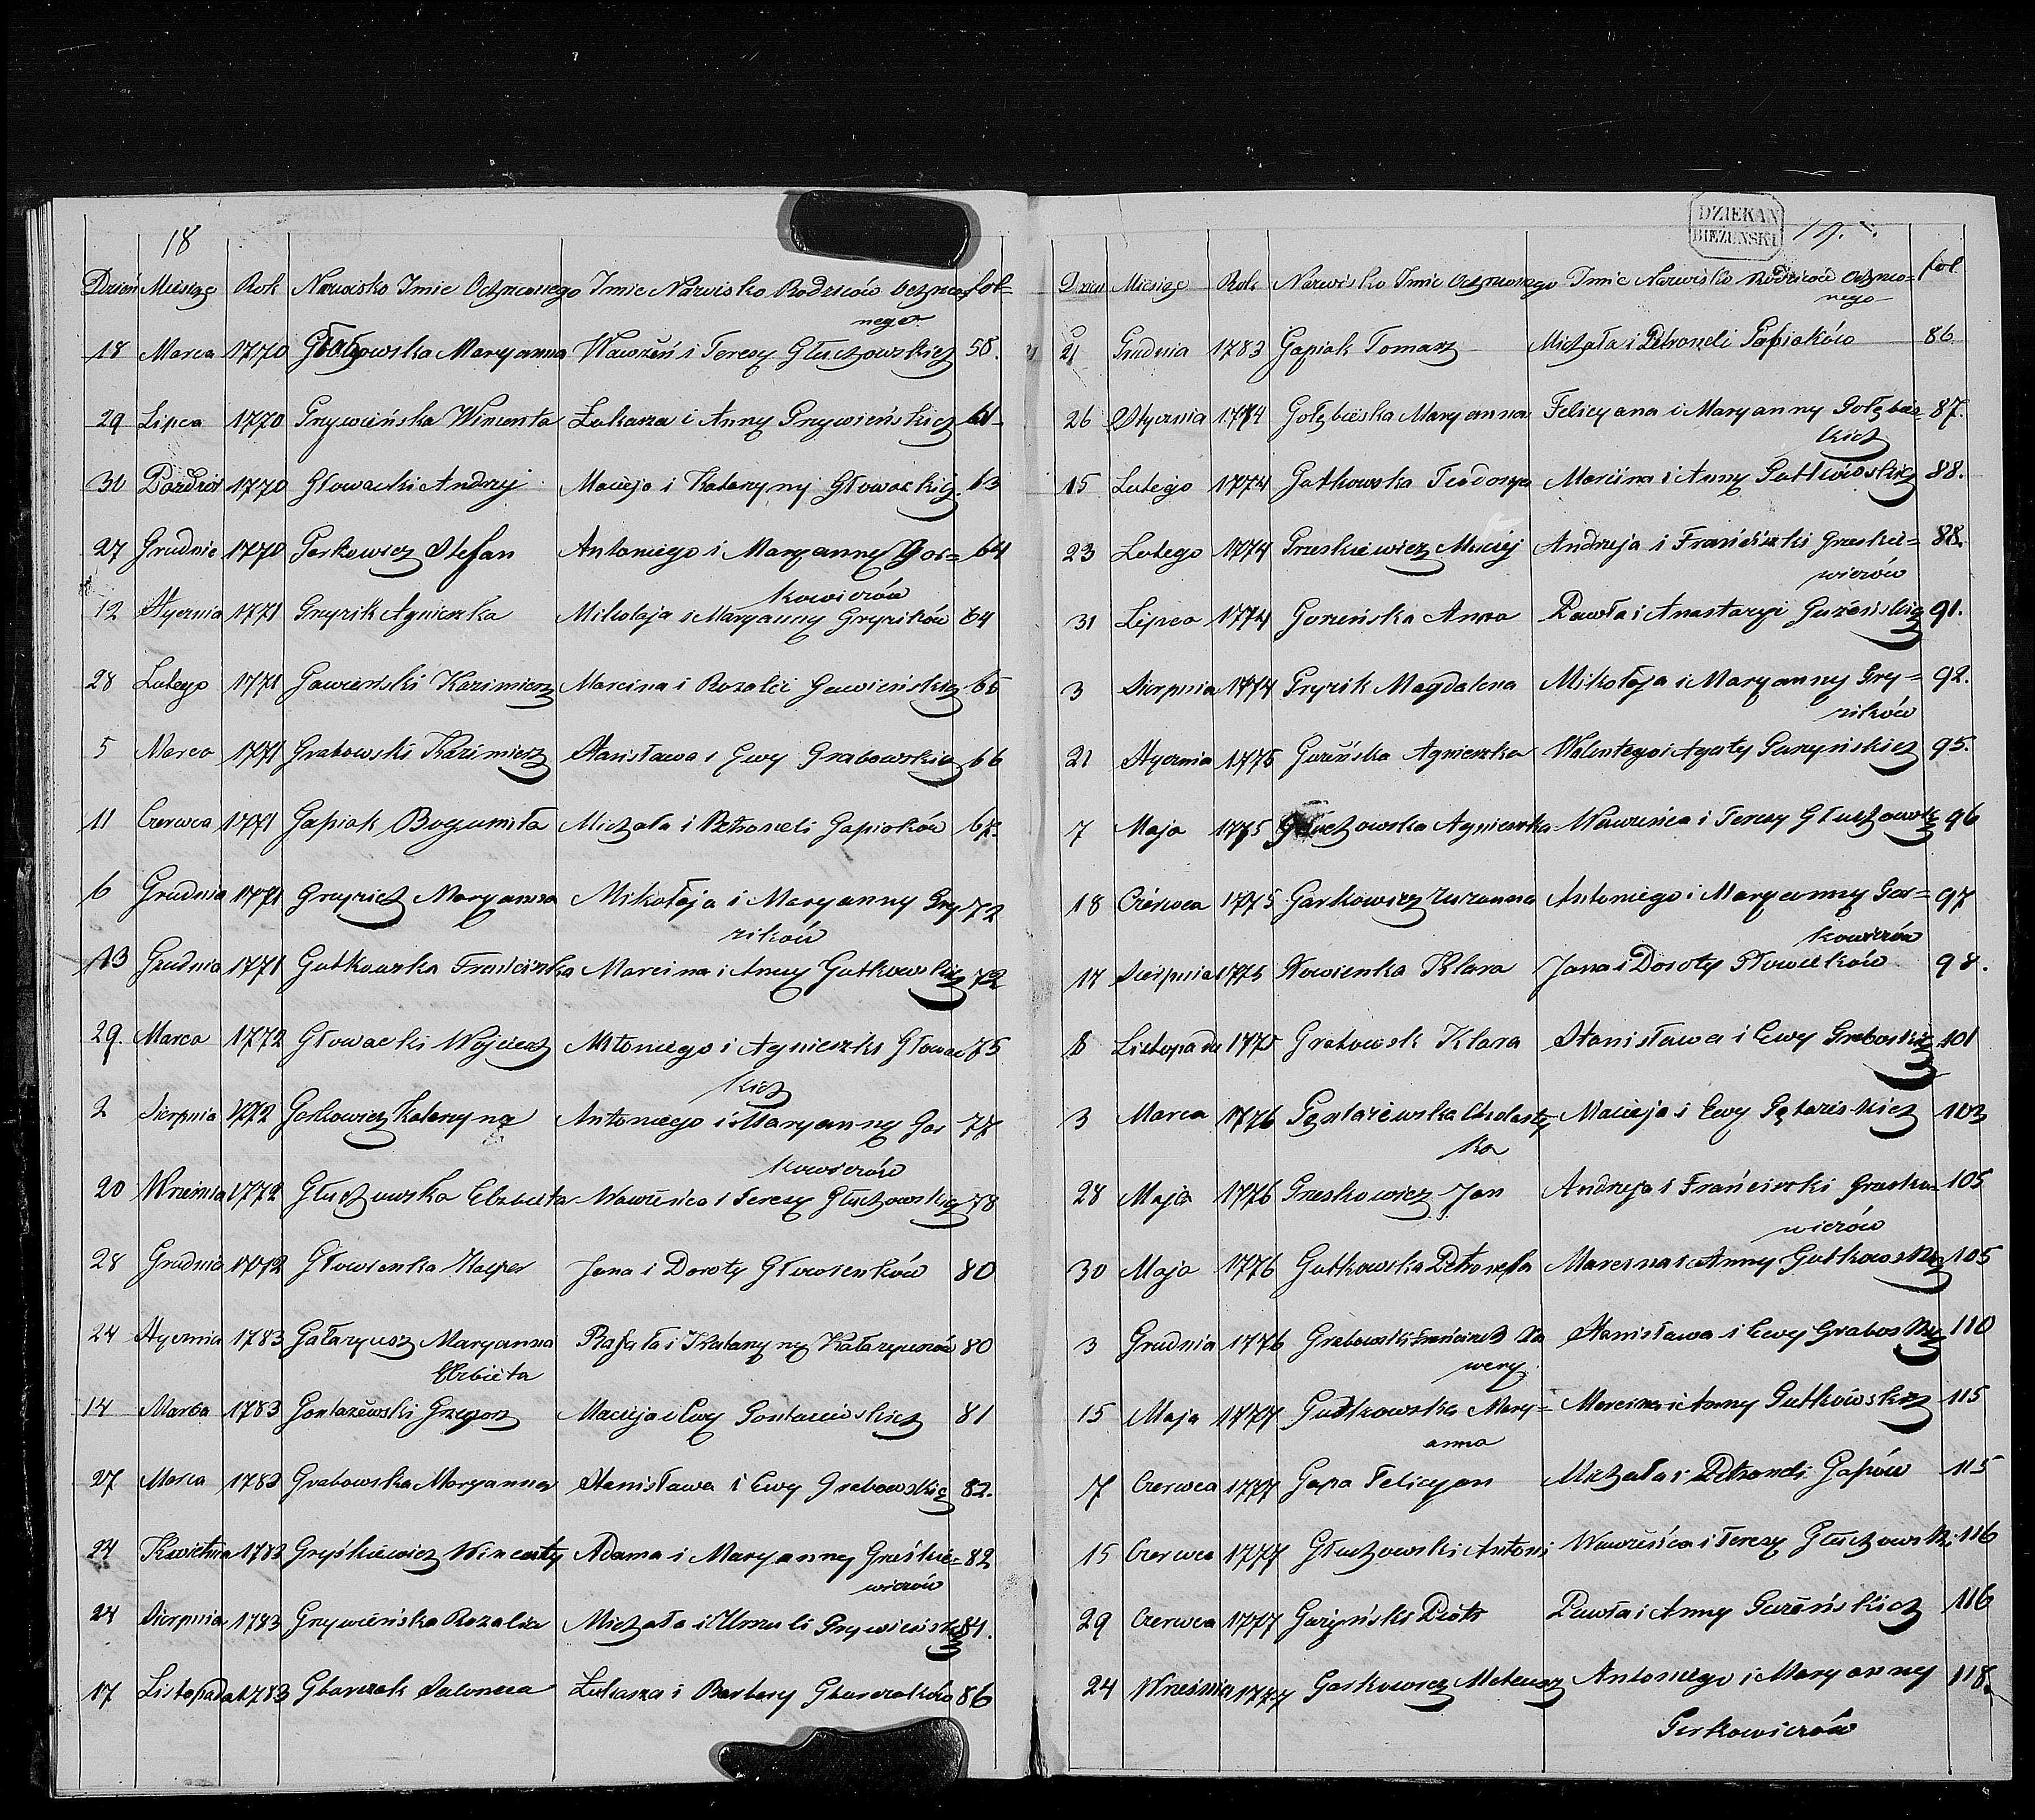 18
Dzień Miesiąc Rok Nazwisko Imie Ochrzconego Imie Nazwisko Rodziców Ochrzco= fol=
nego
18 Marca 1770 Maryanna Wawrzeń i Teresy Głuchowskich 58.
29 Lipca 1770 Grywieńska Wincenta Łukasza i Anny Grywieńskich 61
30 Paździer 1770 Głowacki Andrzej Macieja i Katarzyny Głowackich 63
27 Grudnia 1770 Garkowicz Stefan Antoniego i Maryanny Gar= 64
kowiczów
12 Stycznia 1771 Gryzik Agnieszka Mikołaja i Maryanny Gryzików 64
28 Lutego 1771 Gawieński Kazimierz Marcina i Rozalii Gawieńskich 65
5 Marca 1771 Grabowski Kazimierz Stanisława i Ewy Grabowskich 66
11 Czerwca 1771 Gapiak Bogumiła Michała i Petroneli Gapiaków 67.
6 Grudnia 1771 Gryzich Maryanna Mikołaja i Maryanny Gry 72
zików
13 Grudnia 1771 Gutkowska Franciszka Marcina i Anny Gutkowskich 72
29. Marca 1772 Głowacki Wojciech Antoniego i Agnieszki Głowac 75
kich
2 Sierpnia 1772 Garkowicz Katarzyna Antoniego i Maryanny Gar 77
kowiczów
20 Września 1772 Głuchowska Elzbieta Wawrzeńca i Teresy Głuchowskich 78
28 Grudnia 1772 Głowienka Kacper Jana i Doroty Głowienków 80
24 Stycznia 1783 Gałazyusz Maryanna Rafała i Katarzyny 80
Elzbieta
14 Marca 1783 Gontarzewski Grzegorz Macieja i Ewy 81
27 Marca 1783 Grabowska Maryanna Stanisława i Ewy Grabowskich 82.
24 Kwietnia 1783 Gryśkiewicz Wincenty Adama i Maryanny Gryśkie= 82
wiczów
24 Sierpnia 1783 Grywieńska Rozalia Michała i Urszuli Grywieńskich 84.
17 Listopada 1783 Gbarczak Salomea Łukasza i Barbary Gbarczaków 86
DZIEKAN
BIEZUNSKI
19.
Dzień Miesiąc Rok Nazwisko Imie Ochrzconego Imie Nazwisko Rodziców Ochrzco= fol
nego
21 Grudnia 1783 Gapiak Tomasz Michała i Petroneli Gapiaków 86
26 Stycznia 1774 Gołębieska Maryanna Felicyana i Maryanny Gołębies= 87.
kich
15 Lutego 1774 Gutkowska Teodozya Marcina i Anny Gutkowskich 88.
23 Lutego 1774 Greskiewicz Maciej Andrzeja i Franciszki Greskie= 88.
wiczów
31 Lipca 1774 Gurzeńska Anna Pawła i Anastazyi Gużeńskich 91.
3 Sierpnia 1774 Gryzik Magdalena Mikołaja i Maryanny Gry= 92.
zików
21 Stycznia 1775 Gurzeńska Agnieszka Walentego i Agaty Gurzyńskich 95.
7 Maja 1775 Głuchowska Agnieszka Wawrzeńca i Teresy Głuchowsk 96
18 Czerwca 1775 Garkowicz Zuzanna Antoniego i Maryanny Gar= 97
kowiczów
17 Sierpnia 1775 Klara Jana i Doroty 98.
8 Listopada 1775 Grabowsk Klara Stanisława i Ewy Graboskich 101
3 Marca 1776 Macieja i Ewy 103
ka
28 Maja 1776 Greskowicz Jan Andrzeja i Franciszki Gresko= 105
wiczów
30 Maja 1776 Gutkowska Petronela Marcina i Anny Gutkowskich 105
3 Grudnia 1776 Grabowski Franciszek Xa Stanisława i Ewy Graboskich 110
wery
15 Maja 1777 Gutkowska Mary= Marcina i Anny Gutkowskich 115
anna
7 Czerwca 1777 Gapa Felicyan Michała i Petroneli Gapów 115
15 Czerwca 1777 Głuchowski Antoni Wawrzeńca i Teresy Głuchowsk 116
29 Czerwca 1777 Gużyński Piotr Pawła i Anny Gurzeńskich 116
24 Września 1777 Garkowicz Mateusz Antoniego i Maryanny 118.
Garkowiczów